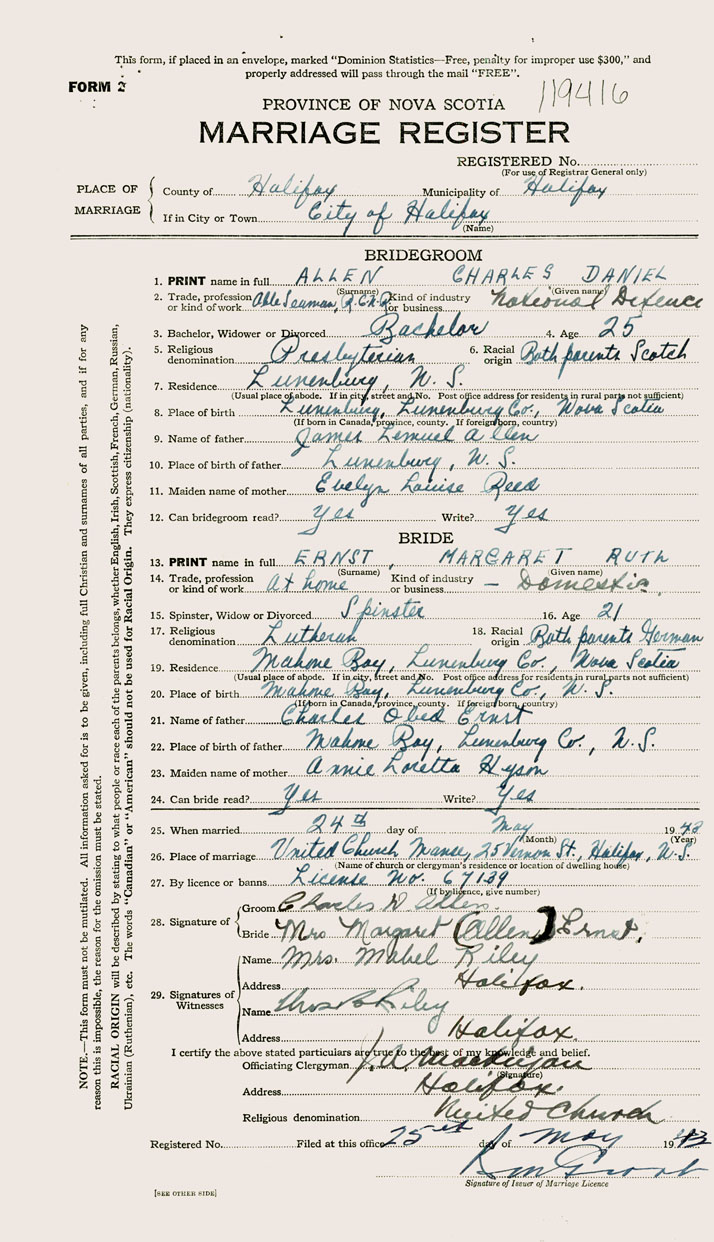 This form, if placed in an envelope, marked "Dominion Statistics—Free, penalty for improper use $300," and
properly addressed will pass through the mail "FREE".
FORM 2
119416
PROVINCE OF NOVA SCOTIA
MARRIAGE REGISTER
REGISTERED No.
(For use of Registrar General only)
PLACE OF MARRIAGE
County of Halifax Municipality of Halifax
If in City or Town City of Halifax
(Name)
BRIDEGROOM
1. PRINT name in full ALLEN CHARLES DANIEL
(Surname) (Given name)
2. Trade, profession or kind of work Able Seaman, R.C.N.R. Kind of industry or business National Defence
3. Bachelor, Widower or Divorced Bachelor 4. Age 25
5. Religious denomination Presbyterian 6. Racial origin Both parents Scotch
7. Residence Lunenburg, N.S.
(Usual place of abode. If in city, street and No. Post office address for residents in rural parts not sufficient)
8. Place of birth Lunenburg, Lunenburg Co., Nova Scotia
(If born in Canada, province, county. If foreign born, country)
9. Name of father James Lemuel Allen
10. Place of birth of father Lunenburg, N.S.
11. Maiden name of mother Evelyn Louise Reed
12. Can bridegroom read? Yes Write? Yes
BRIDE
13. PRINT name in full ERNST, MARGARET RUTH
(Surname) (Given name)
14. Trade, profession or kind of work At home Kind of industry or business — Domestic
15. Spinster, Widow or Divorced Spinster 16. Age 21
17. Religious denomination Lutheran 18. Racial origin Both parents German
19. Residence Mahone Bay, Lunenburg Co., Nova Scotia
(Usual place of abode. If in city, street and No. Post office address for residents in rural parts not sufficient)
20. Place of birth Mahone Bay, Lunenburg Co., N.S.
(If born in Canada, province, county. If foreign born, country)
21. Name of father Charles Obed Ernst
22. Place of birth of father Mahone Bay, Lunenburg Co., N.S.
23. Maiden name of mother Annie Loretta Hyson
24. Can bride read? Yes Write? Yes
25. When married 24th day of May 1943
(Month) (Year)
26. Place of marriage United Church Manse, 25 Vernon St., Halifax, N.S.
(Name of church or clergyman's residence or location of dwelling house)
27. By licence or banns License No. 67139
(If by licence, give number)
28. Signature of
Groom Charles D Allen.
Bride Mrs Margaret (Allen) Ernst.
29. Signatures of Witnesses
Name Mrs. Mabel Riley
Address Halifax.
Name Riley
Address Halifax.
I certify the above stated particulars are true to the best of my knowledge and belief.
Officiating Clergyman J. A.
(Signature)
Address Halifax.
Religious denomination United Church
Registered No. Filed at this office 25th day of May 1943
Signature of Issuer of Marriage Licence
[SEE OTHER SIDE]
NOTE.—This form must not be mutilated. All information asked for is to be given, including full Christian and surnames of all parties, and if for any
reason this is impossible, the reason for the omission must be stated.
RACIAL ORIGIN will be described by stating to what people or race each of the parents belongs, whether English, Irish, Scottish, French, German, Russian,
Ukrainian (Ruthenian), etc. The words "Canadian" or "American" should not be used for Racial Origin. They express citizenship (nationality).